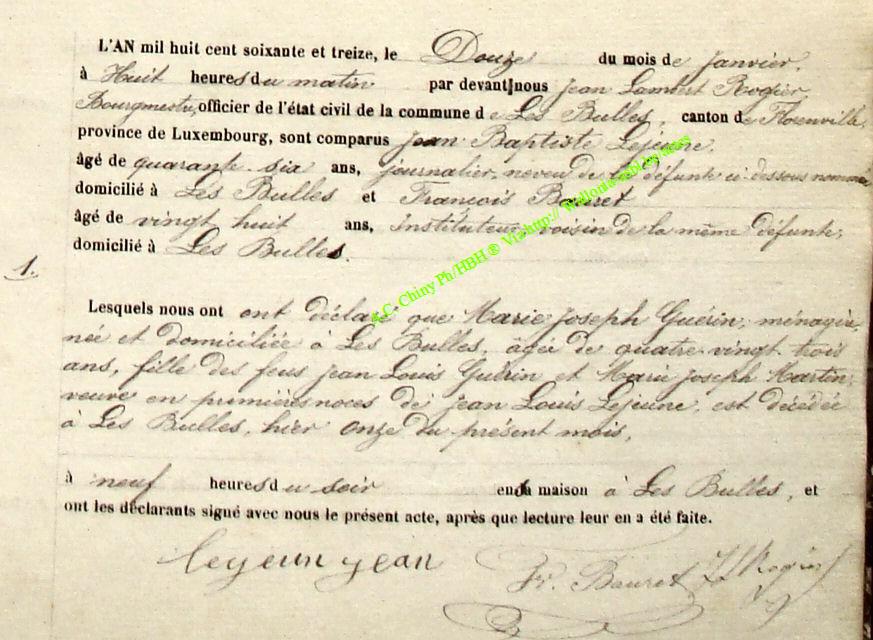 L'AN mil huit cent soixante et treize, le Douze du mois de janvier,
à Huit heures du matin par devant nous Jean Lambert Rogier,
Bourgmestre, officier de l'état civil de la commune de Les Bulles, canton de Florenville,
province de Luxembourg, sont comparus Jean Baptiste Lejeune,
âgé de quarante-six ans, journalier, neveu de la défunte ci-dessous nommée
domicilié à Les Bulles et François Bauret
âgé de vingt huit ans, Instituteur, voisin de la même défunte,
domicilié à Les Bulles.
1.
Lesquels nous ont ont déclaré que Marie Joseph Guérin, ménagère,
née et domiciliée à Les Bulles, âgée de quatre-vingt-trois
ans, fille des feus Jean Louis Guérin et Marie Joseph Martin,
veuve en premières noces de Jean Louis Lejeune, est décédée
à Les Bulles, hier onze du présent mois,
à neuf heures du soir en sa maison à Les Bulles, et
ont les déclarants signé avec nous le présent acte, après que lecture leur en a été faite.
lejeun jean Fr. Bauret JL Rogier
A.C. Chiny Ph/HBH ® Via http://